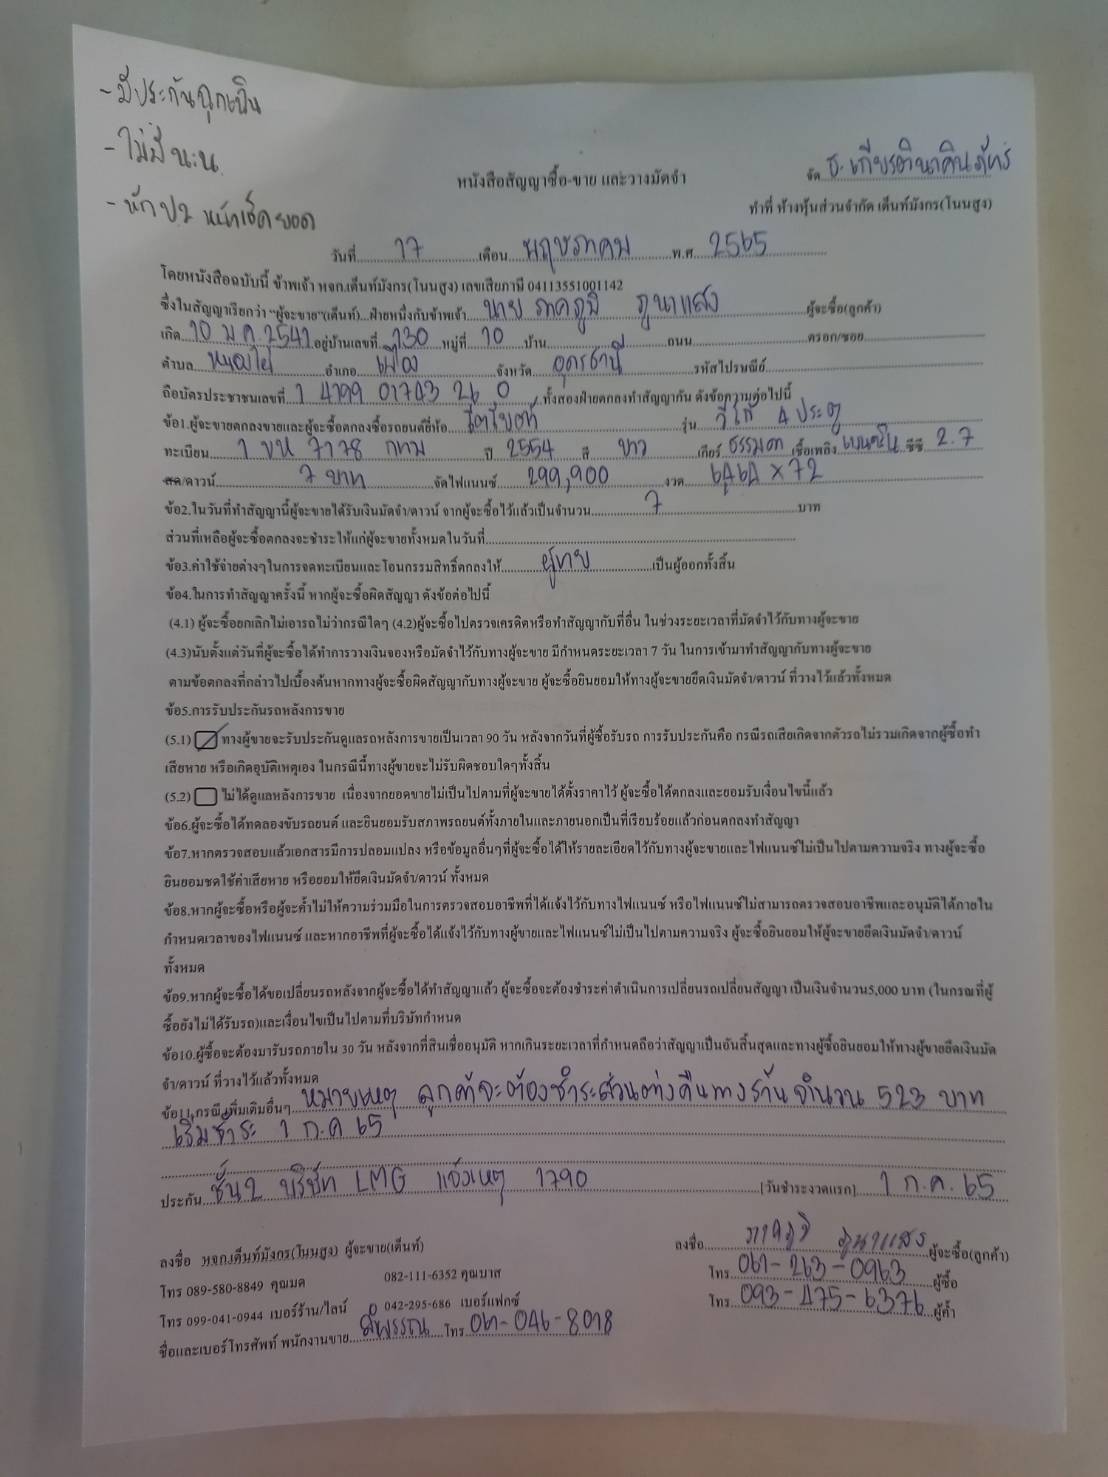 - มีประกันฉุกเฉิน
- ไม่มี
- หัก ปข หน้าเช็คยอด
หนังสือสัญญาซื้อ-ขาย และวางมัดจำ
จัด ธ.เกียรตินาคินภัทร
ทำที่ ห้างหุ้นส่วนจำกัด เต็นท์มังกร(โนนสูง)
วันที่ 17 เดือน พฤษภาคม พ.ศ. 2565
โดยหนังสือฉบับนี้ ข้าพเจ้า หจก.เต็นท์มังกร(โนนสูง) เลขเสียภาษี 04113551001142
ซึ่งในสัญญาเรียกว่า "ผู้จะขาย"(เต็นท์)...ฝ่ายหนึ่งกับข้าพเจ้า นาย ภาคภูมิ ภูนาแสง ผู้จะซื้อ(ลูกค้า)
เกิด 10 ม.ค. 2541 อยู่บ้านเลขที่ 130 หมู่ที่ 10 บ้าน ถนน ตรอก/ซอย
ตำบล หนองไผ่ อำเภอ เมือง จังหวัด อุดรธานี รหัสไปรษณีย์
ถือบัตรประชาชนเลขที่ 1 4199 01743 26 0 ทั้งสองฝ่ายตกลงทำสัญญากัน ดังข้อความต่อไปนี้
ข้อ1.ผู้จะขายตกลงขายและผู้จะซื้อตกลงซื้อรถยนต์ยี่ห้อ โตโยต้า รุ่น วีโก้ 4 ประตู
ทะเบียน 1 ขห 7178 กทม ปี 2554 สี ขาว เกียร์ ธรรมดา เชื้อเพลิง เบนซิน ซีซี 2.7
สด/ดาวน์ 7 บาท จัดไฟแนนซ์ 299,900 งวด 6,464 x 72
ข้อ2.ในวันที่ทำสัญญานี้ผู้จะขายได้รับเงินมัดจำ/ดาวน์ จากผู้จะซื้อไว้แล้วเป็นจำนวน 7 บาท
ส่วนที่เหลือผู้จะซื้อตกลงจะชำระให้แก่ผู้จะขายทั้งหมดในวันที่
ข้อ3.ค่าใช้จ่ายต่างๆในการจดทะเบียนและโอนกรรมสิทธิ์ตกลงให้ ผู้ขาย เป็นผู้ออกทั้งสิ้น
ข้อ4.ในการทำสัญญาครั้งนี้ หากผู้จะซื้อผิดสัญญา ดังข้อต่อไปนี้
(4.1) ผู้จะซื้อยกเลิกไม่เอารถไม่ว่ากรณีใดๆ (4.2)ผู้จะซื้อไปตรวจเครดิตหรือทำสัญญากับที่อื่น ในช่วงระยะเวลาที่มัดจำไว้กับทางผู้จะขาย
(4.3)นับตั้งแต่วันที่ผู้จะซื้อได้ทำการวางเงินจองหรือมัดจำไว้กับทางผู้จะขาย มีกำหนดระยะเวลา 7 วัน ในการเข้ามาทำสัญญากับทางผู้จะขาย
ตามข้อตกลงที่กล่าวไปเบื้องต้นหากทางผู้จะซื้อผิดสัญญากับทางผู้จะขาย ผู้จะซื้อยินยอมให้ทางผู้จะขายยึดเงินมัดจำ/ดาวน์ ที่วางไว้แล้วทั้งหมด
ข้อ5.การรับประกันรถหลังการขาย
(5.1) ทางผู้ขายจะรับประกันดูแลรถหลังการขายเป็นเวลา 90 วัน หลังจากวันที่ผู้ซื้อรับรถ การรับประกันคือ กรณีรถเสียเกิดจากตัวรถไม่รวมเกิดจากผู้ซื้อทำ
เสียหาย หรือเกิดอุบัติเหตุเอง ในกรณีนี้ทางผู้ขายจะไม่รับผิดชอบใดๆทั้งสิ้น
(5.2) ไม่ได้ดูแลหลังการขาย เนื่องจากยอดขายไม่เป็นไปตามที่ผู้จะขายได้ตั้งราคาไว้ ผู้จะซื้อได้ตกลงและยอมรับเงื่อนไขนี้แล้ว
ข้อ6.ผู้จะซื้อได้ทดลองขับรถยนต์ และยินยอมรับสภาพรถยนต์ทั้งภายในและภายนอกเป็นที่เรียบร้อยแล้วก่อนตกลงทำสัญญา
ข้อ7.หากตรวจสอบแล้วเอกสารมีการปลอมแปลง หรือข้อมูลอื่นๆที่ผู้จะซื้อได้ให้รายละเอียดไว้กับทางผู้จะขายและไฟแนนซ์ไม่เป็นไปตามความจริง ทางผู้จะซื้อ
ยินยอมชดใช้ค่าเสียหาย หรือยอมให้ยึดเงินมัดจำ/ดาวน์ ทั้งหมด
ข้อ8.หากผู้จะซื้อหรือผู้จะค้ำไม่ให้ความร่วมมือในการตรวจสอบอาชีพที่ได้แจ้งไว้กับทางไฟแนนซ์ หรือไฟแนนซ์ไม่สามารถตรวจสอบอาชีพและอนุมัติได้ภายใน
กำหนดเวลาของไฟแนนซ์ และหากอาชีพที่ผู้จะซื้อได้แจ้งไว้กับทางผู้ขายและไฟแนนซ์ไม่เป็นไปตามความจริง ผู้จะซื้อยินยอมให้ผู้จะขายยึดเงินมัดจำ/ดาวน์
ทั้งหมด
ข้อ9.หากผู้จะซื้อได้ขอเปลี่ยนรถหลังจากผู้จะซื้อได้ทำสัญญาแล้ว ผู้จะซื้อจะต้องชำระค่าดำเนินการเปลี่ยนรถเปลี่ยนสัญญา เป็นเงินจำนวน5,000 บาท (ในกรณีที่ผู้
ซื้อยังไม่ได้รับรถ)และเงื่อนไขเป็นไปตามที่บริษัทกำหนด
ข้อ10.ผู้ซื้อจะต้องมารับรถภายใน 30 วัน หลังจากที่สินเชื่ออนุมัติ หากเกินระยะเวลาที่กำหนดถือว่าสัญญาเป็นอันสิ้นสุดและทางผู้ซื้อยินยอมให้ทางผู้ขายยึดเงินมัด
จำ/ดาวน์ ที่วางไว้แล้วทั้งหมด
ข้อ11.กรณีเพิ่มเติมอื่นๆ หมายเหตุ ลูกค้าจะต้องชำระส่วนต่างคืนทางร้านจำนวน 523 บาท
เริ่มชำระ 1 ก.ค 65
ประกัน ชั้น2 บริษัท LMG แจ้งเหตุ 1790 (วันชำระงวดแรก) 1 ก.ค. 65
ลงชื่อ หจก.เต็นท์มังกร(โนนสูง) ผู้จะขาย(เต็นท์)
ลงชื่อ ภาคภูมิ ภูนาแสง ผู้จะซื้อ(ลูกค้า)
โทร 089-580-8849 คุณมด 082-111-6352 คุณบาส
โทร 061-263-0963 ผู้ซื้อ
โทร 099-041-0944 เบอร์ร้าน/ไลน์ 042-295-686 เบอร์แฟกซ์
โทร 093-475-6376 ผู้ค้ำ
ชื่อและเบอร์โทรศัพท์ พนักงานขาย โทร 061-046-8018